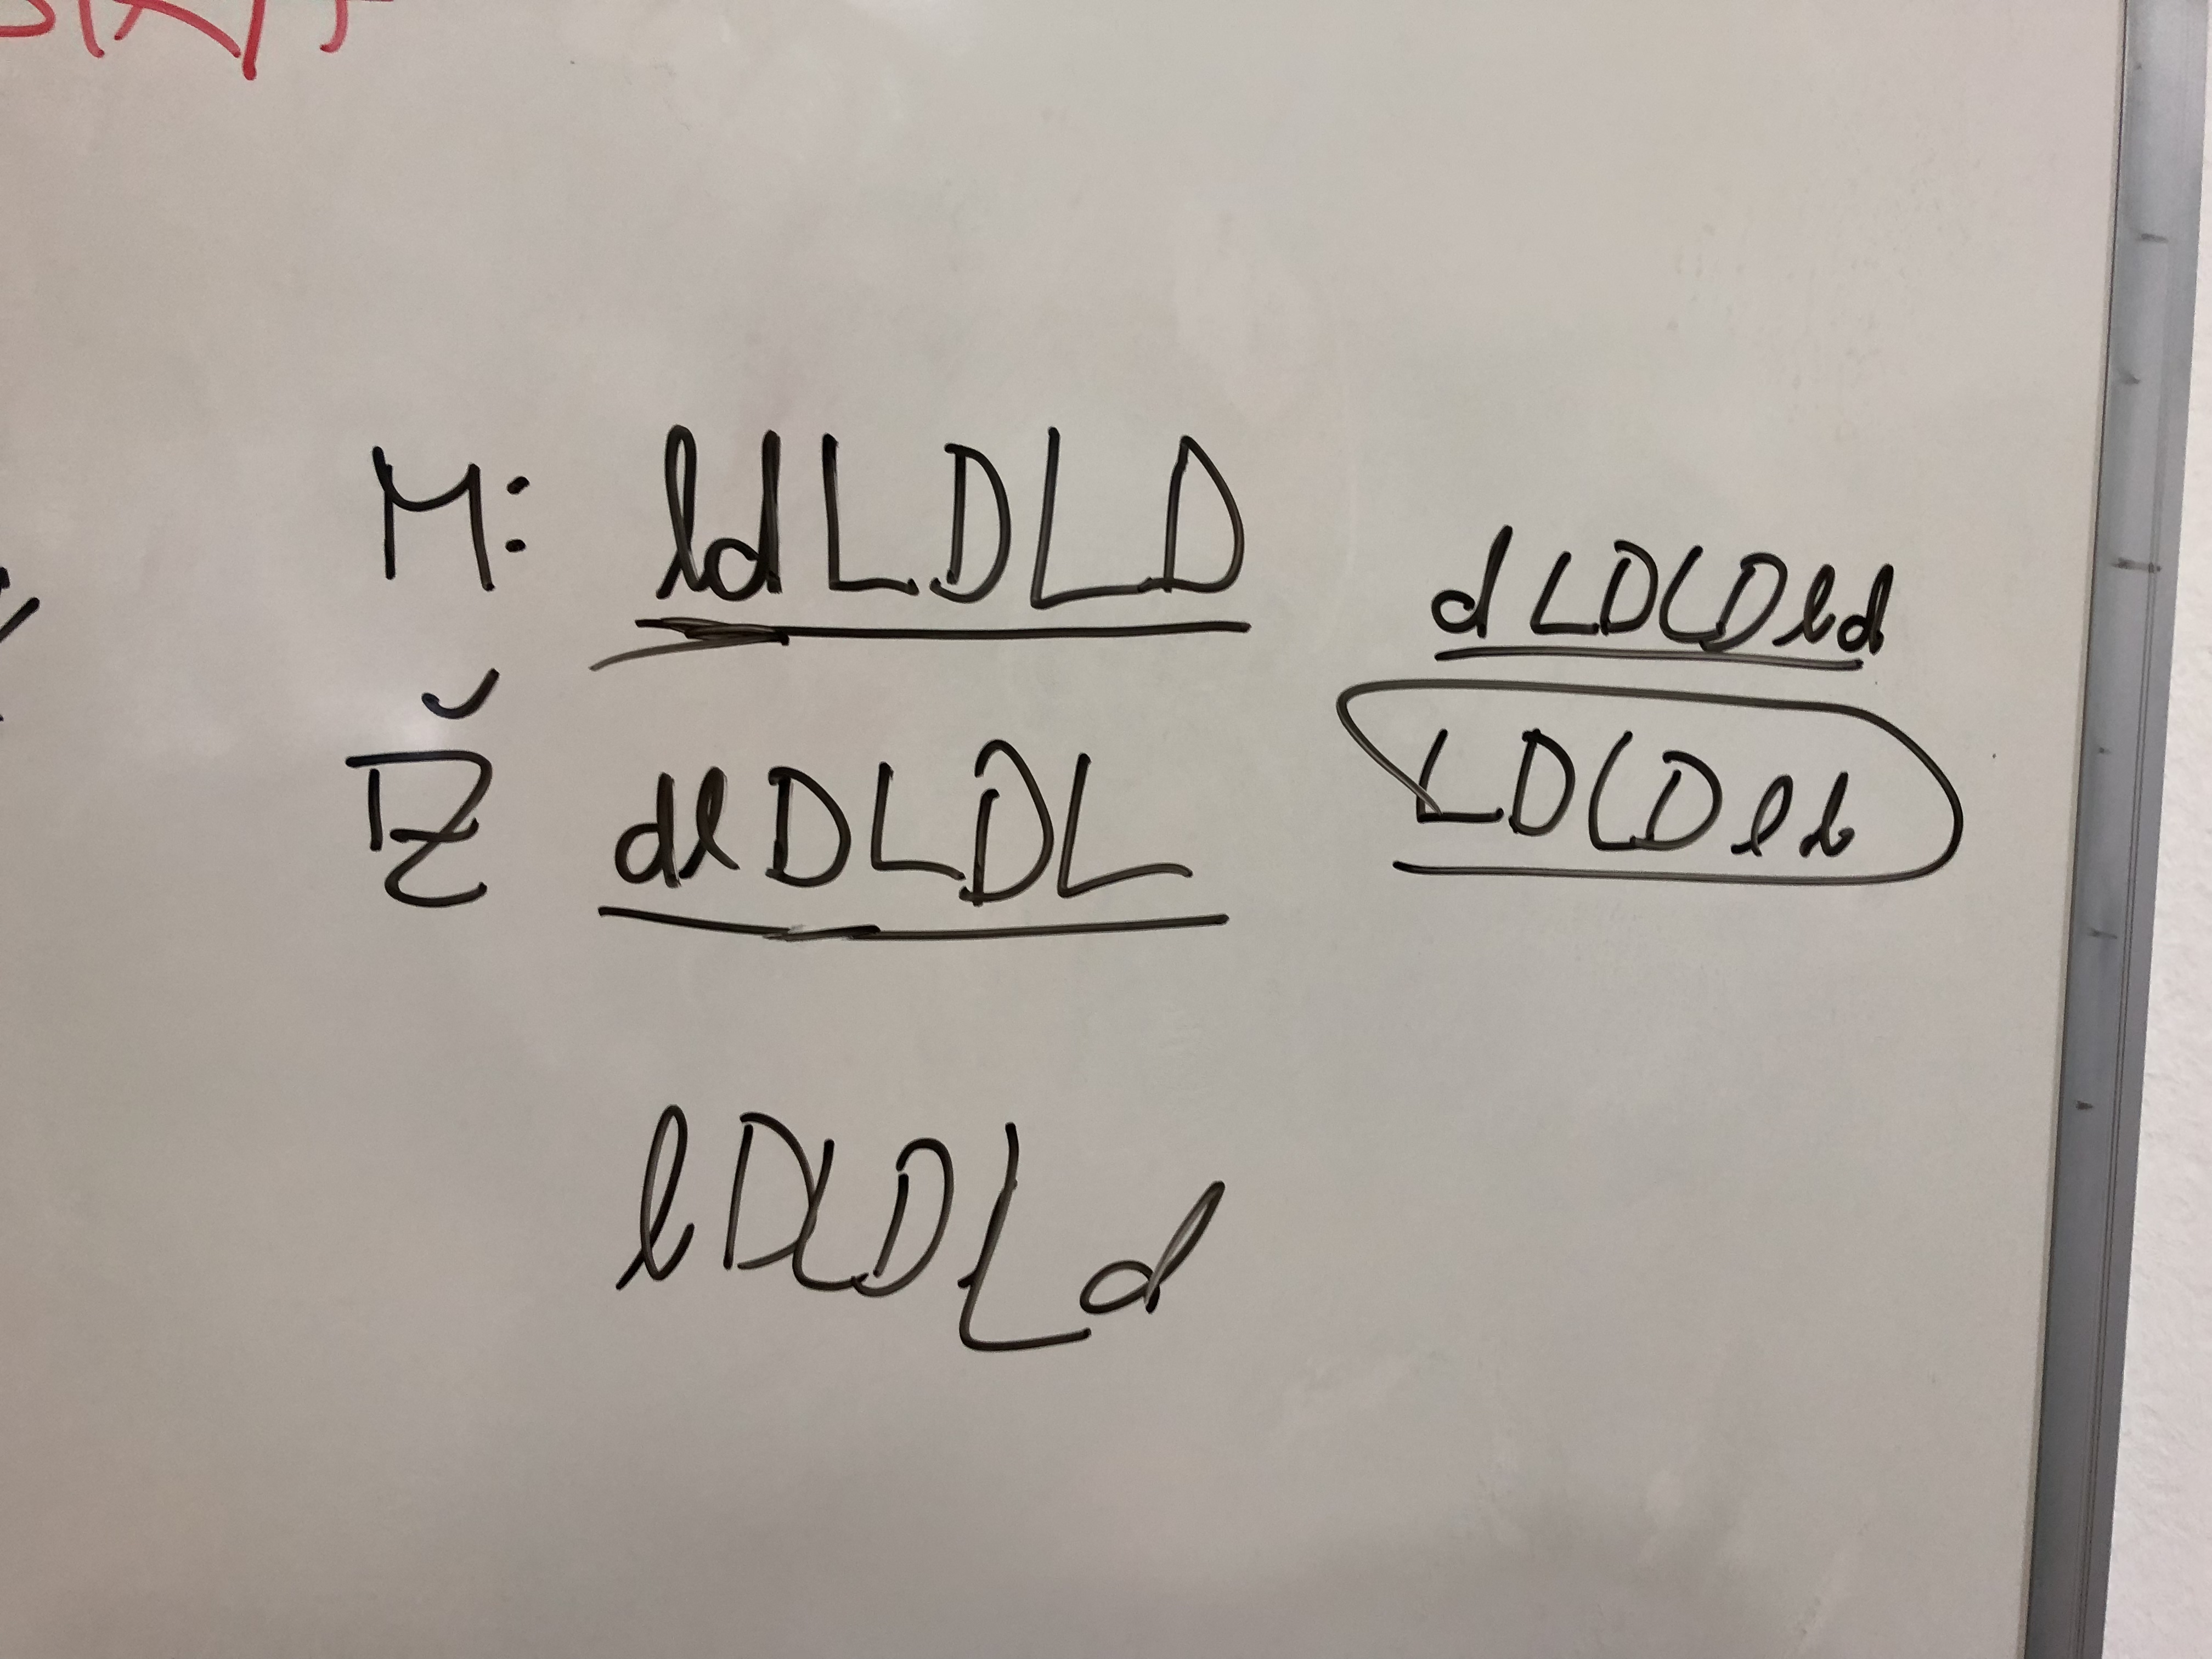 M: ldLDLD
dLDLDld
Ž dlDLDL
LDLDlb
lDLDLd